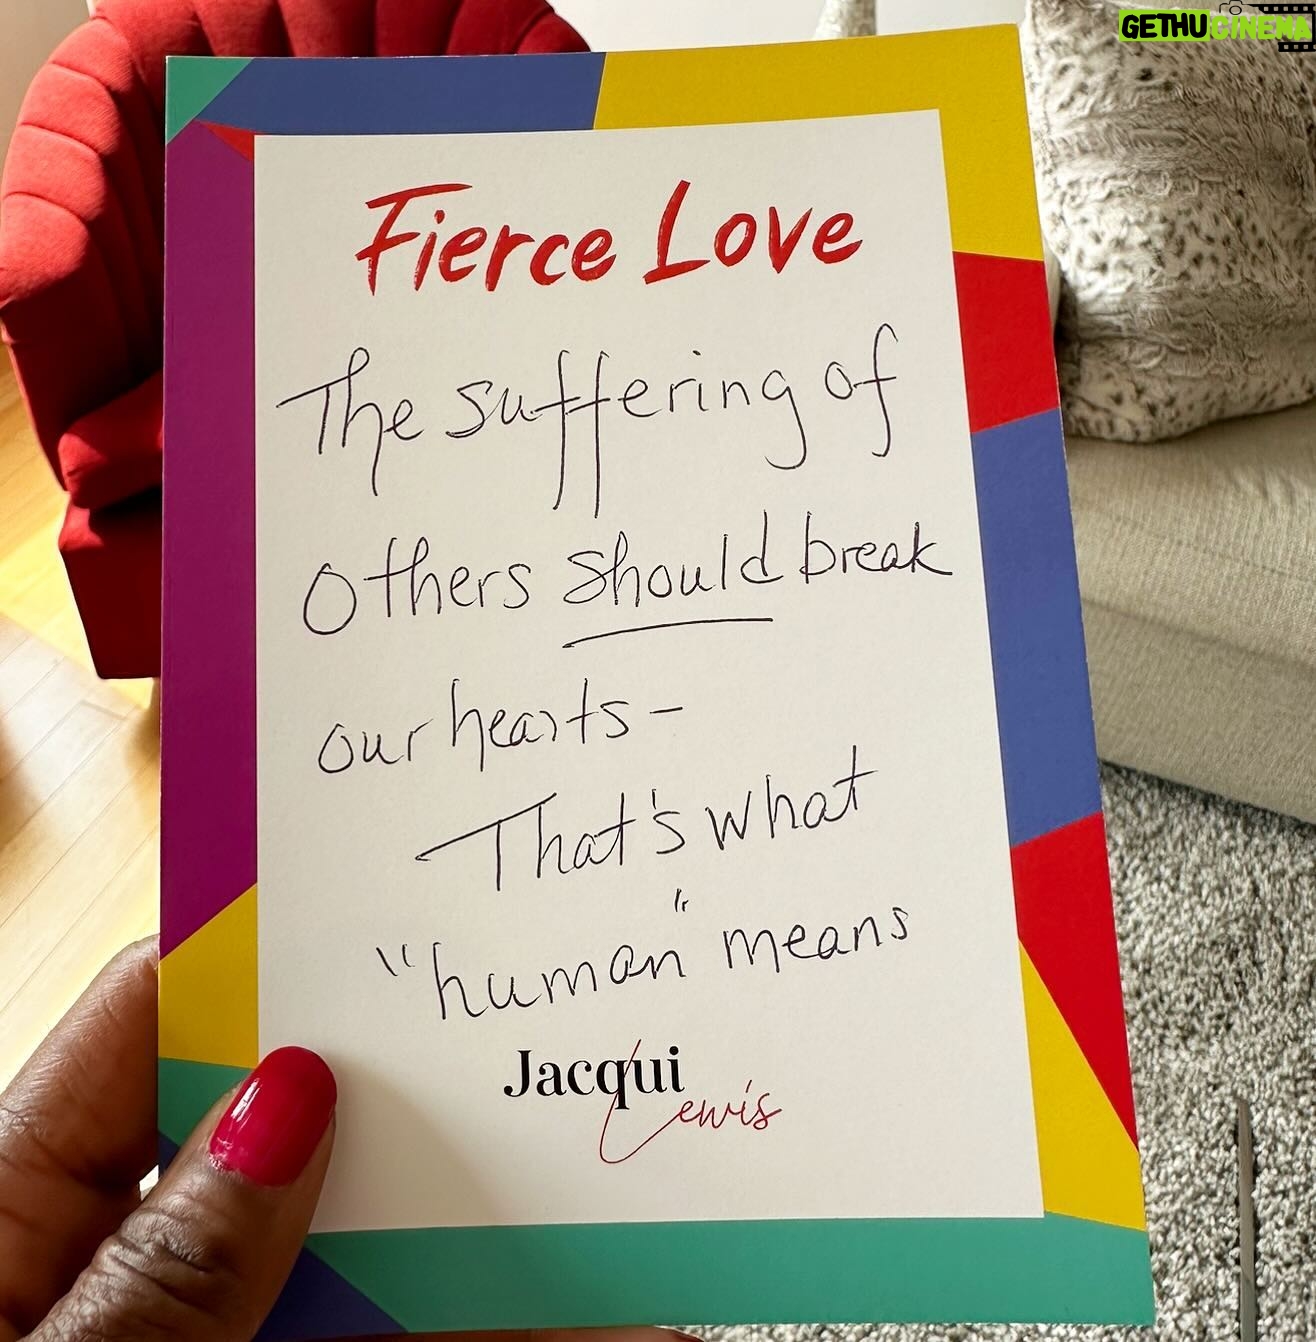 GETHUCINEMA
Fierce Love
The suffering of
others should break
our hearts-
That's what
"human" means
Jacqui
Lewis